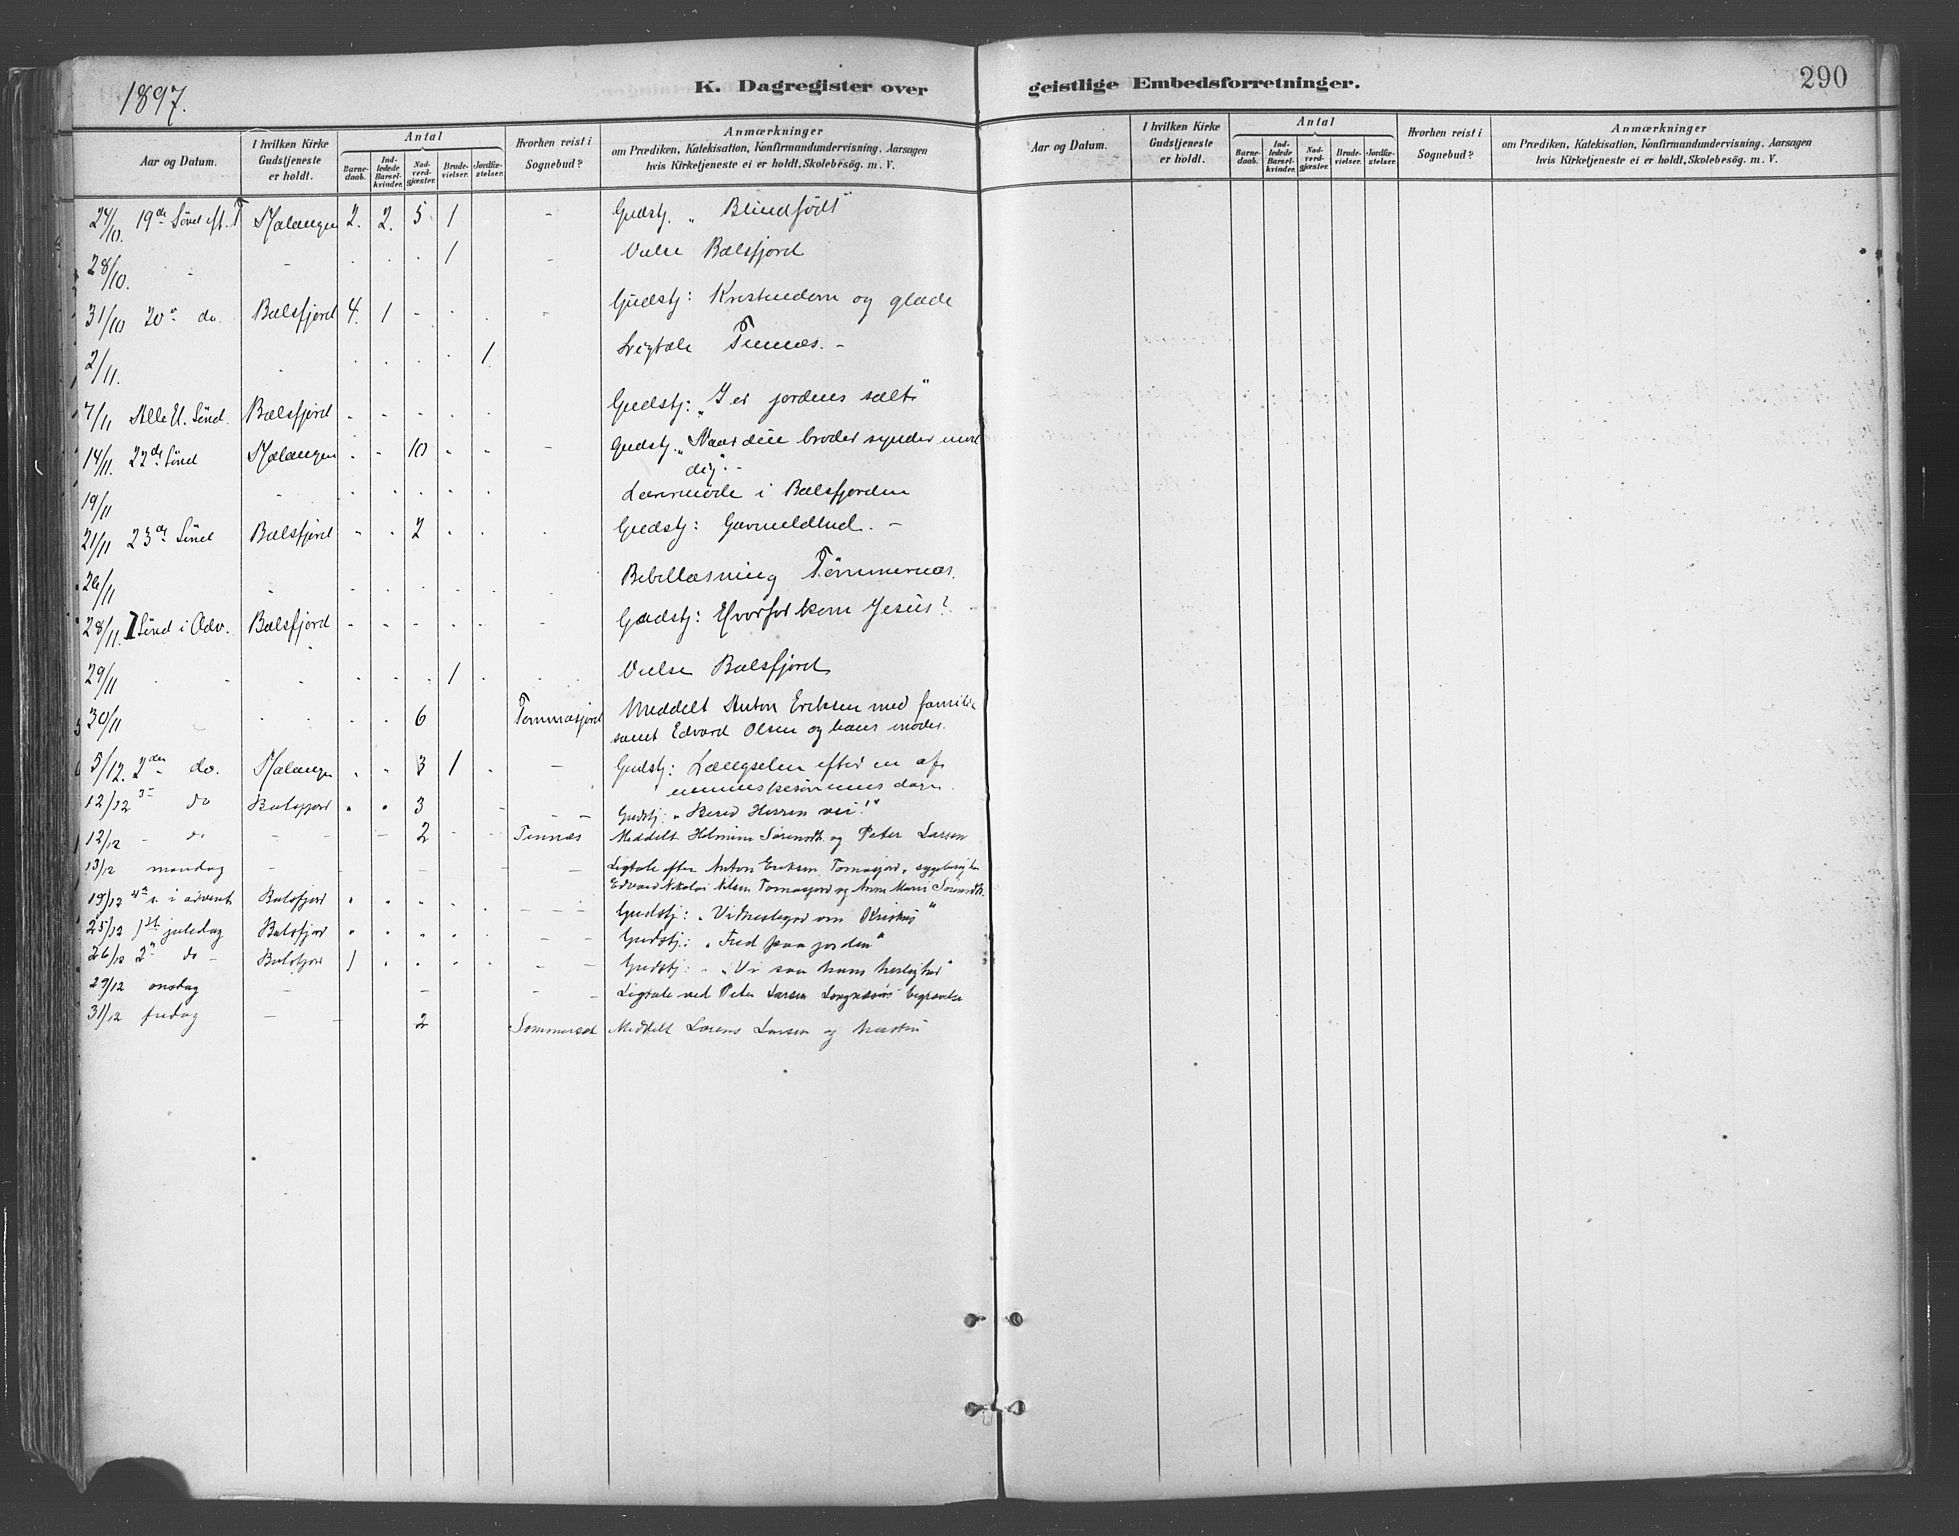 1897.
K. Dagregister over geistlige Embedsforretninger.
290
Aar og Datum. I hvilken Kirke Gudstjeneste er holdt. Antal Barnedaab. Indledede Barselkvinder. Nadverdgjæster. Brudevielser. Jordfæstelser. Hvorhen reist i Sognebud? Anmærkninger om Prædiken, Katekisation, Konfirmandundervisning, Aarsagen hvis Kirketjeneste ei er holdt, Skolebesög. m. V.
Aar og Datum. I hvilken Kirke Gudstjeneste er holdt. Antal Barnedaab. Indledede Barselkvinder. Nadverdgjæster. Brudevielser. Jordfæstelser. Hvorhen reist i Sognebud? Anmærkninger om Prædiken, Katekisation, Konfirmandundervisning, Aarsagen hvis Kirketjeneste ei er holdt, Skolebesög. m. V.
24/10. 19de Sönd eft. T Malangen 2. 2. 5 1 - Gudstj. „Blindfödt"
28/10. - - 1 - Vielse Balsfjord
31/10 20de do. Balsfjord 4. 1 - - Gudstj: Kristendom og glæde
2/11. 1 Ligtale Tennæs. -
7/11 Alle H. Sönd. Balsfjord - - - - Gudstj: „I er jordens salt"
14/11. 22de Sönd Malangen - - 10 - - - Gudstj. „Naar din broder synder mod
dig". -
19/11 - Lærermöde i Balsfjorden
21/11 23de Sönd Balsfjord - - 2 - - Gudstj: Gavmildhed. -
26/11 Bibellæsning Tömmernæs.
28/11. 1 Sönd i Adv. Balsfjord - - - - Gudstj: Hvorfor kom Jesus?
29/11 1 Vielse Balsfjord
30/11 6 Tommasjord Meddelt Anton Eriksen med familie
samt Edvard Olsen og hans moder.
5/12. 2den do. Malangen - - 3 1 - Gudstj: Længselen efter en af
menneskesönnens dage.
12/12 3de do Balsfjord - - 3 - - Gudstj: „Bered Herren vei!"
12/12 - do - - 2 - - Tennæs Meddelt Sörensdtr og Peter Larsen
13/12 mandag - - - Ligtale efter Anton Eriksen Tomasjord, sygebesög hos
Edvard Nikolai Nilsen Tomasjord og Anne Marie Sörensdtr.
19/12 4de s. i advent Balsfjord - - - Gudstj: „Vidnesbyrd om Kristus"
25/12 1ste juledag Balsfjord - - Gudstj: „Fred paa jorden"
26/12 2den do - Balsfjord 1 - - Gudstj: „Vi saa hans herlighed"
29/12 onsdag - - - Ligtale ved Peter Larsen begravelse
31/12 fredag - - 2 Sommerset Meddelt Larsen og hustru